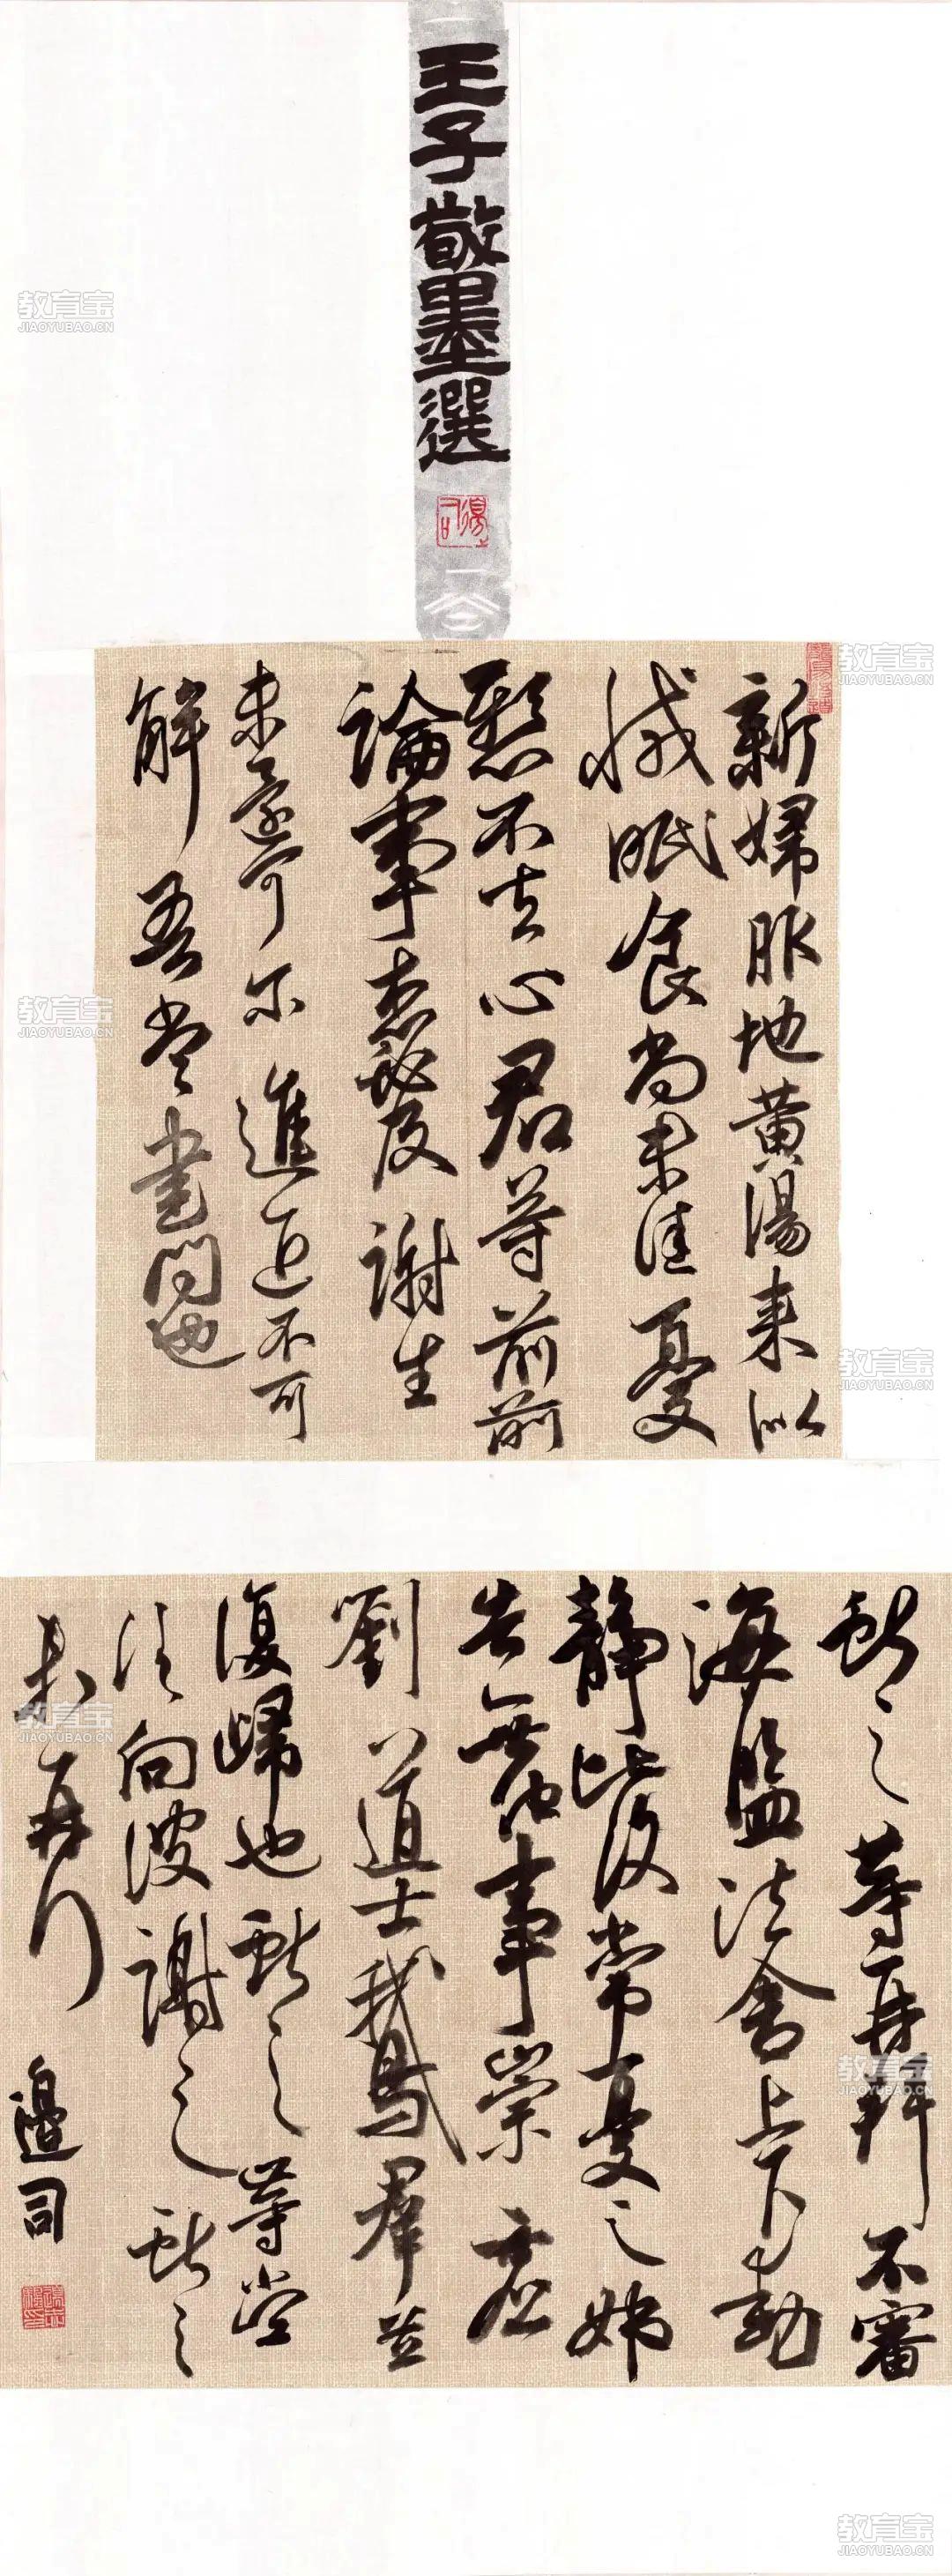 王子敬墨選
新婦服地黃湯來似
減眠食尚未佳憂
懸不去心君等前所
論事想必及謝生
未還可尔進退不可
解吾當書問也
獻之等再拜不審
海鹽諸舍上下動
靜比復常憂之姊
告無他事崇虛
劉道士鵞羣並
復歸也獻之等當
須向彼謝之獻之
等再拜
邊司
教育宝
JIAOYUBAO.CN
教育宝
JIAOYUBAO.CN
教育宝
JIAOYUBAO.CN
教育宝
JIAOYUBAO.CN
教育宝
JIAOYUBAO.CN
教育宝
JIAOYUBAO.CN
教育宝
JIAOYUBAO.CN